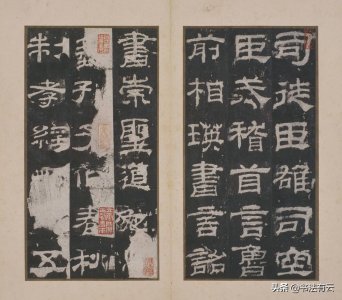 司徒臣雄司空
臣戒稽首言魯
前相瑛書言詔
書崇聖道勉
孔子作春秋
制孝經 五
头条 @书法有云